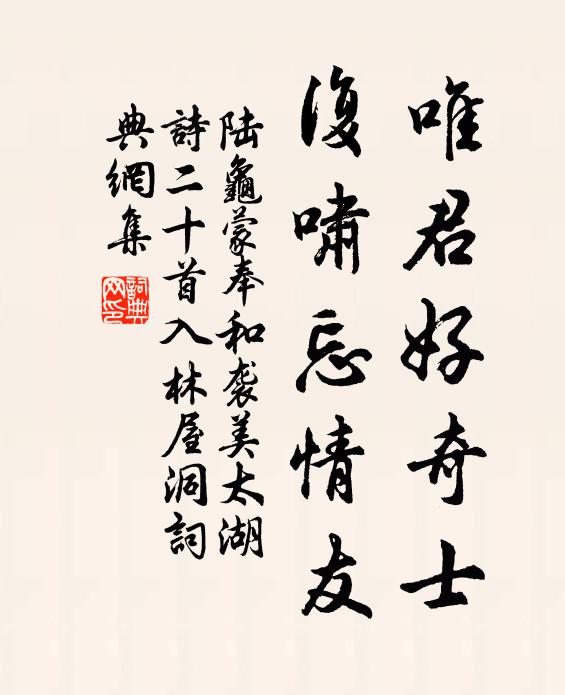 唯君好奇士
復嘯忘情友
陆龜蒙奉和袭美太湖
詩二十首入林屋洞詞
典網集
詞典网印